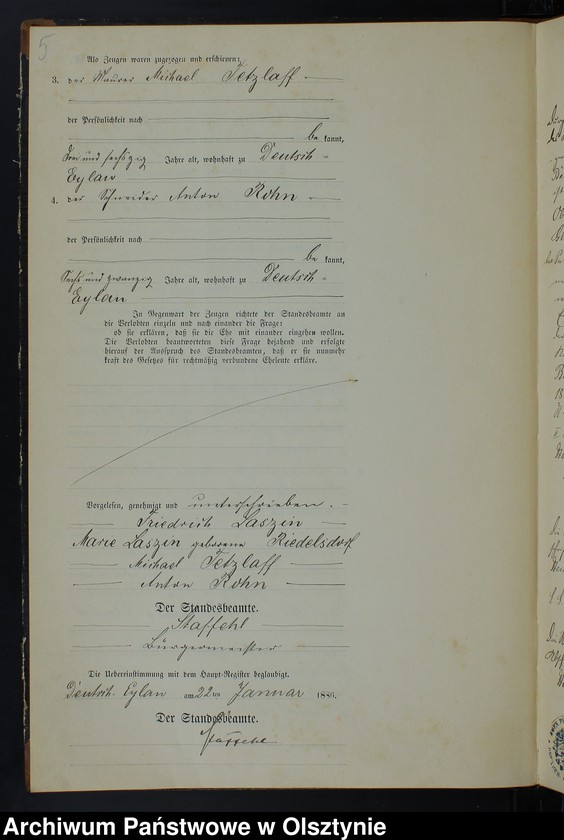 5
Als Zeugen waren zugezogen und erschienen:
3. der Maurer Michael Tetzlaff
der Persönlichkeit nach
be kannt,
drei und sechszig Jahre alt, wohnhaft zu Deutsch-
Eylau
4. der Schneider Anton Rohn
der Persönlichkeit nach
be kannt,
sechs und zwanzig Jahre alt, wohnhaft zu Deutsch-
Eylau
In Gegenwart der Zeugen richtete der Standesbeamte an
die Verlobten einzeln und nach einander die Frage:
ob sie erklären, daß sie die Ehe mit einander eingehen wollen.
Die Verlobten beantworteten diese Frage bejahend und erfolgte
hierauf der Ausspruch des Standesbeamten, daß er sie nunmehr
kraft des Gesetzes für rechtmäßig verbundene Eheleute erkläre.
Vorgelesen, genehmigt und unterschrieben.
Friedrich Laszin
Marie Laszin geborene Riedelsdorf
Michael Tetzlaff
Anton Rohn
Der Standesbeamte.
Staffehl
Bürgermeister
Die Uebereinstimmung mit dem Haupt-Register beglaubigt.
Deutsch Eylau am 22ten Januar 1886.
Der Standesbeamte.
Staffehl
Archiwum Państwowe w Olsztynie